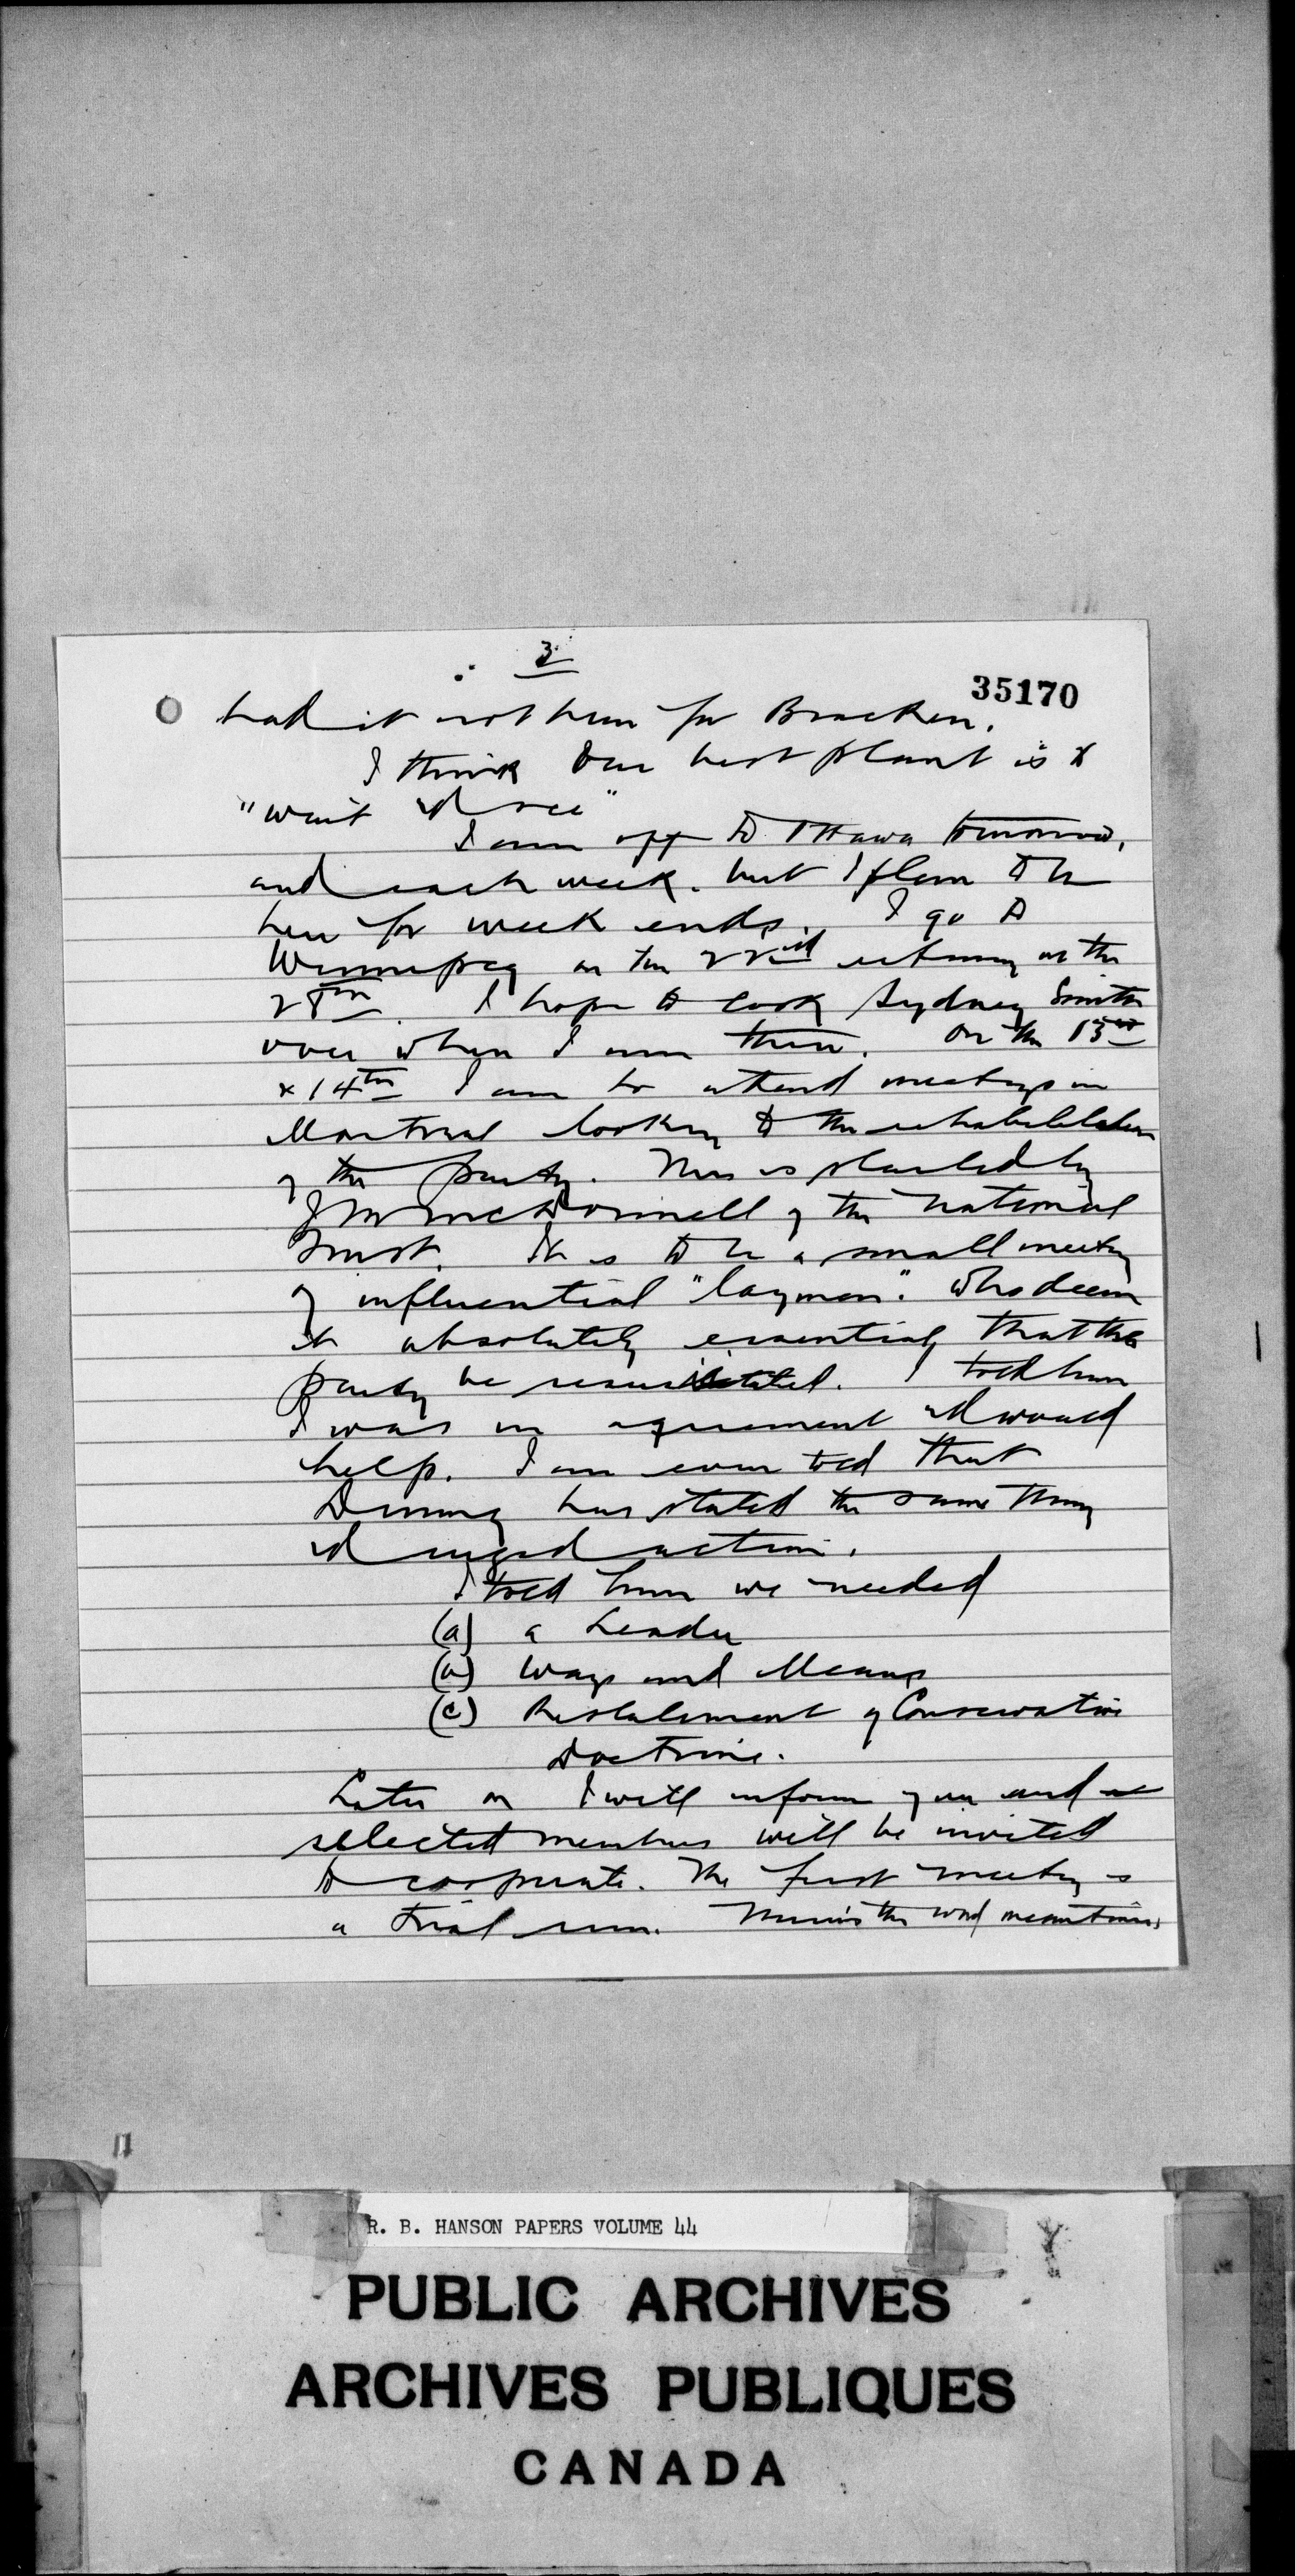 3
35170
had it not been for Bracken.
I think our best plan is to
"wait and see"
I am off to Ottawa tomorrow,
and each week. but I plan to be
here for week ends. I go to
Winnipeg on the 22nd returning on the
28th. I hope to look Sydney Smith
over when I am there. On the 13th
& 14th I am to attend meetings in
Montreal looking to the rehabilitation
of the party. This is started by
J M McDonnell of the National
Trust. It is to be a small meeting
of influential "laymen". who deem
it absolutely essential that the
party be resuscitated. I told him
I was in agreement and would
help. I am even told that
Dunning has stated the same thing
and urged action.
I told him we needed
(a) a Leader
(b) Ways and Means
(c) Restatement of Conservative
Doctrine.
Later on I will inform you and
selected members will be invited
to cooperate. The first meeting is
a trial run. Mum's the word meantime.
R. B. HANSON PAPERS VOLUME 44
PUBLIC ARCHIVES
ARCHIVES PUBLIQUES
CANADA